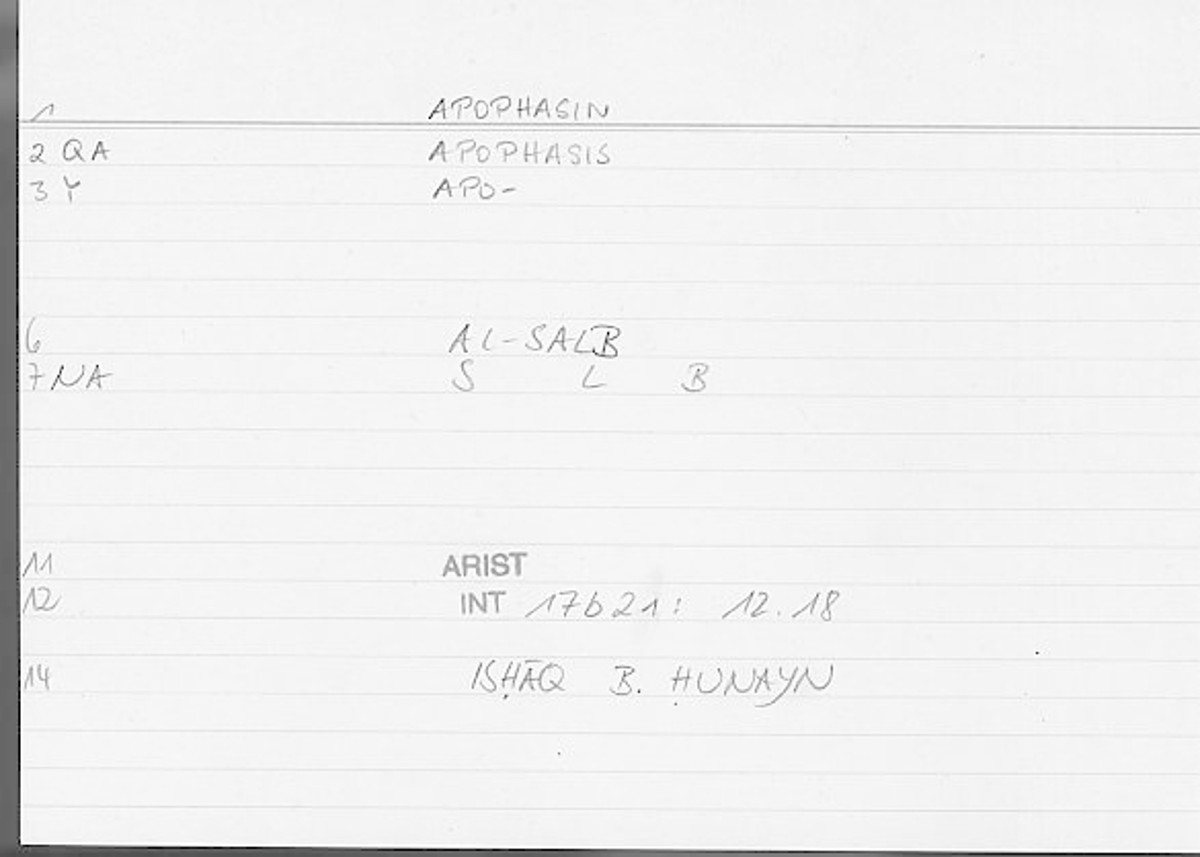 1 APOPHASIN
2 QA APOPHASIS
3 Y APO-
6 AL-SALB
7 NA S L B
11 ARIST
12 INT 17b21: 12.18
14 ISḤĀQ B. ḤUNAYN